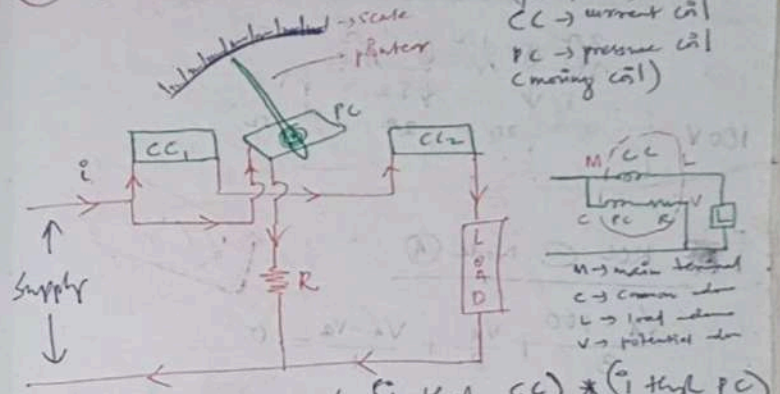 → scale
→ pointer
CC → current coil
PC → pressure coil
(moving coil)
PC
CC₁
CC₂
i
Supply
R
LOAD
M CC L
C PC R V
L
M → main terminal
C → Common
L → load
V → potential
CC) * (i through PC)